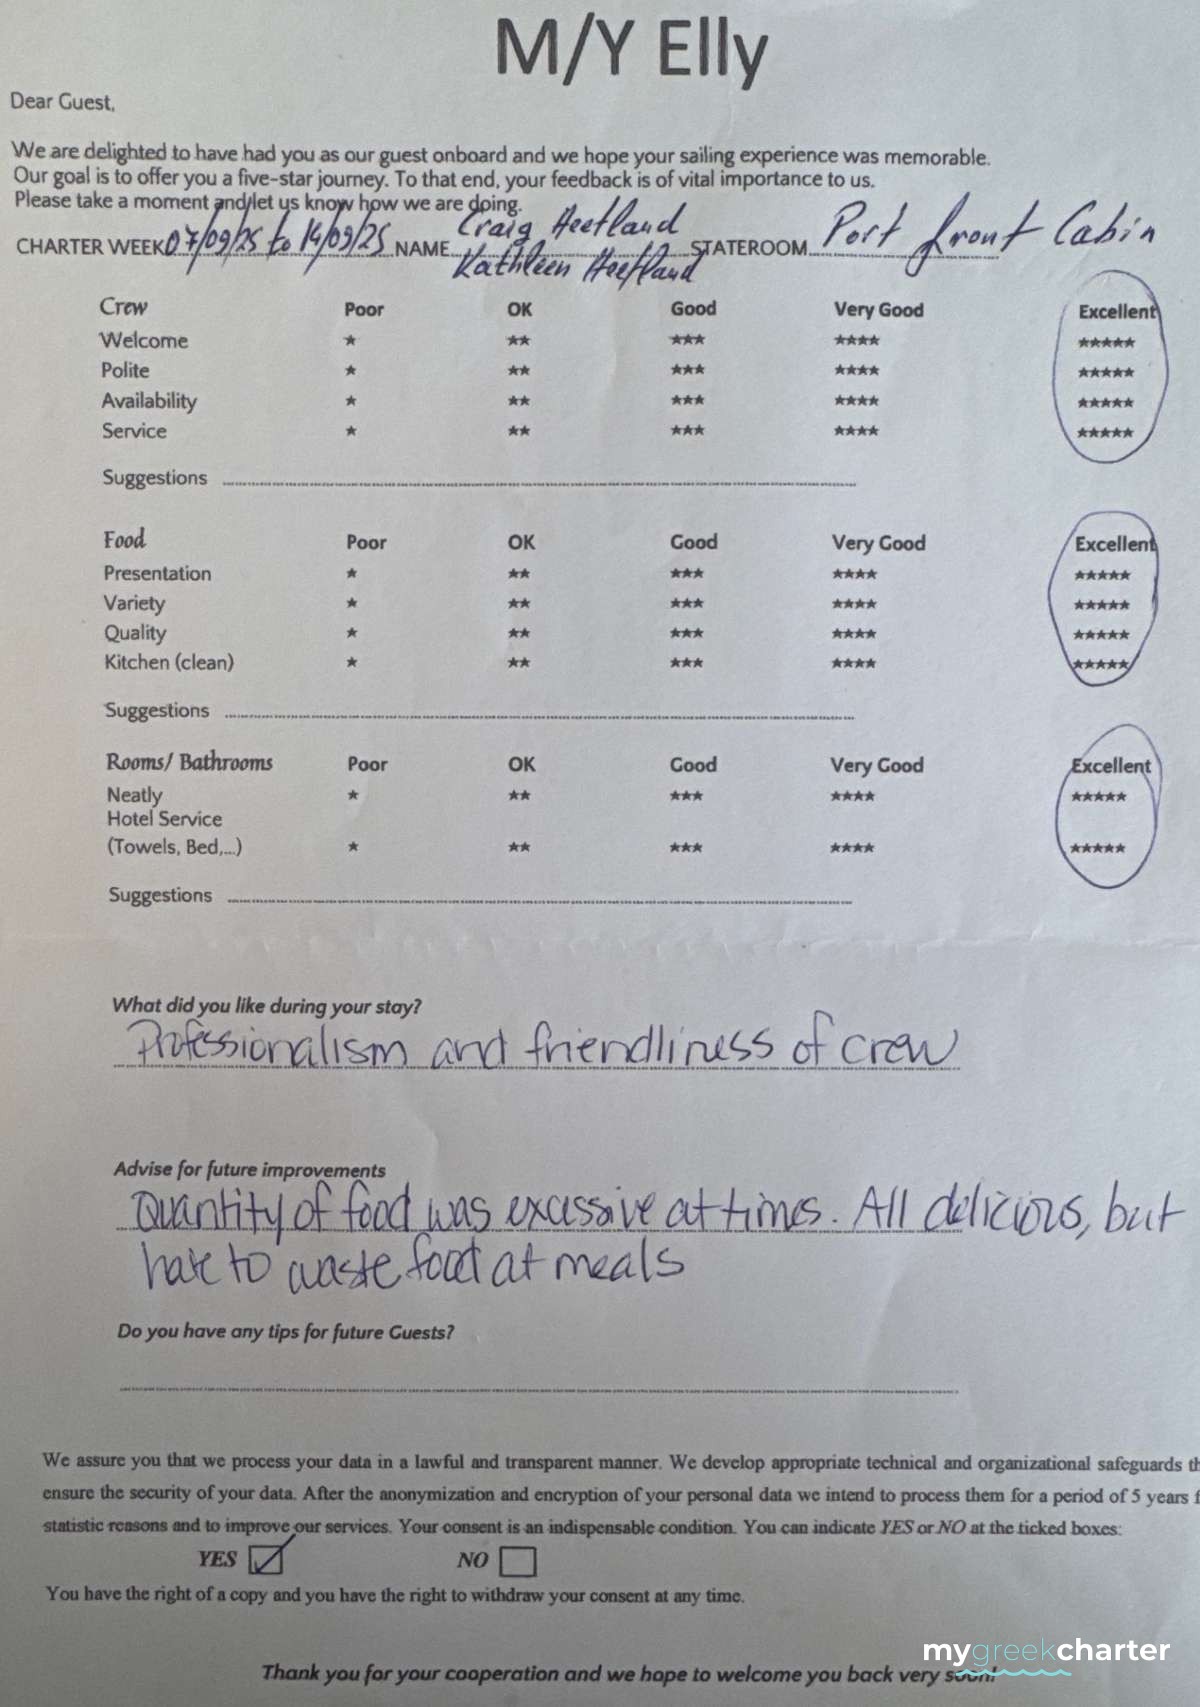 M/Y Elly
Dear Guest,
We are delighted to have had you as our guest onboard and we hope your sailing experience was memorable.
Our goal is to offer you a five-star journey. To that end, your feedback is of vital importance to us.
Please take a moment and let us know how we are doing.
CHARTER WEEK 07/09/25 to 14/09/25 NAME Craig Heetland STATEROOM Port front Cabin
Kathleen Heetland
Crew Poor OK Good Very Good Excellent
Welcome ★ ★★ ★★★ ★★★★ ★★★★★
Polite ★ ★★ ★★★ ★★★★ ★★★★★
Availability ★ ★★ ★★★ ★★★★ ★★★★★
Service ★ ★★ ★★★ ★★★★ ★★★★★
Suggestions
Food Poor OK Good Very Good Excellent
Presentation ★ ★★ ★★★ ★★★★ ★★★★★
Variety ★ ★★ ★★★ ★★★★ ★★★★★
Quality ★ ★★ ★★★ ★★★★ ★★★★★
Kitchen (clean) ★ ★★ ★★★ ★★★★ ★★★★★
Suggestions
Rooms/ Bathrooms Poor OK Good Very Good Excellent
Neatly ★ ★★ ★★★ ★★★★ ★★★★★
Hotel Service
(Towels, Bed,...) ★ ★★ ★★★ ★★★★ ★★★★★
Suggestions
What did you like during your stay?
Professionalism and friendliness of crew
Advise for future improvements
Quantity of food was excessive at times. All delicious, but
hate to waste food at meals
Do you have any tips for future Guests?
We assure you that we process your data in a lawful and transparent manner. We develop appropriate technical and organizational safeguards th
ensure the security of your data. After the anonymization and encryption of your personal data we intend to process them for a period of 5 years f
statistic reasons and to improve our services. Your consent is an indispensable condition. You can indicate YES or NO at the ticked boxes:
YES NO
You have the right of a copy and you have the right to withdraw your consent at any time.
mygreekcharter
Thank you for your cooperation and we hope to welcome you back very soon!